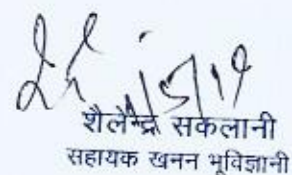 शैलेन्द्र सकलानी
सहायक खनन भूविज्ञानी